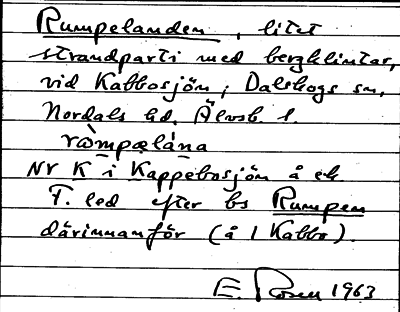 Rumpelanden, litet
strandparti med bergklintar,
vid Kabbosjön, Dalskogs sn,
Nordals hd. Älvsb. l.
ròmpælána
Nr K i Kappebosjön å ek
T. led efter bs Rumpen
därinnanför (å 1 Kabbo).
E. Rosen 1963